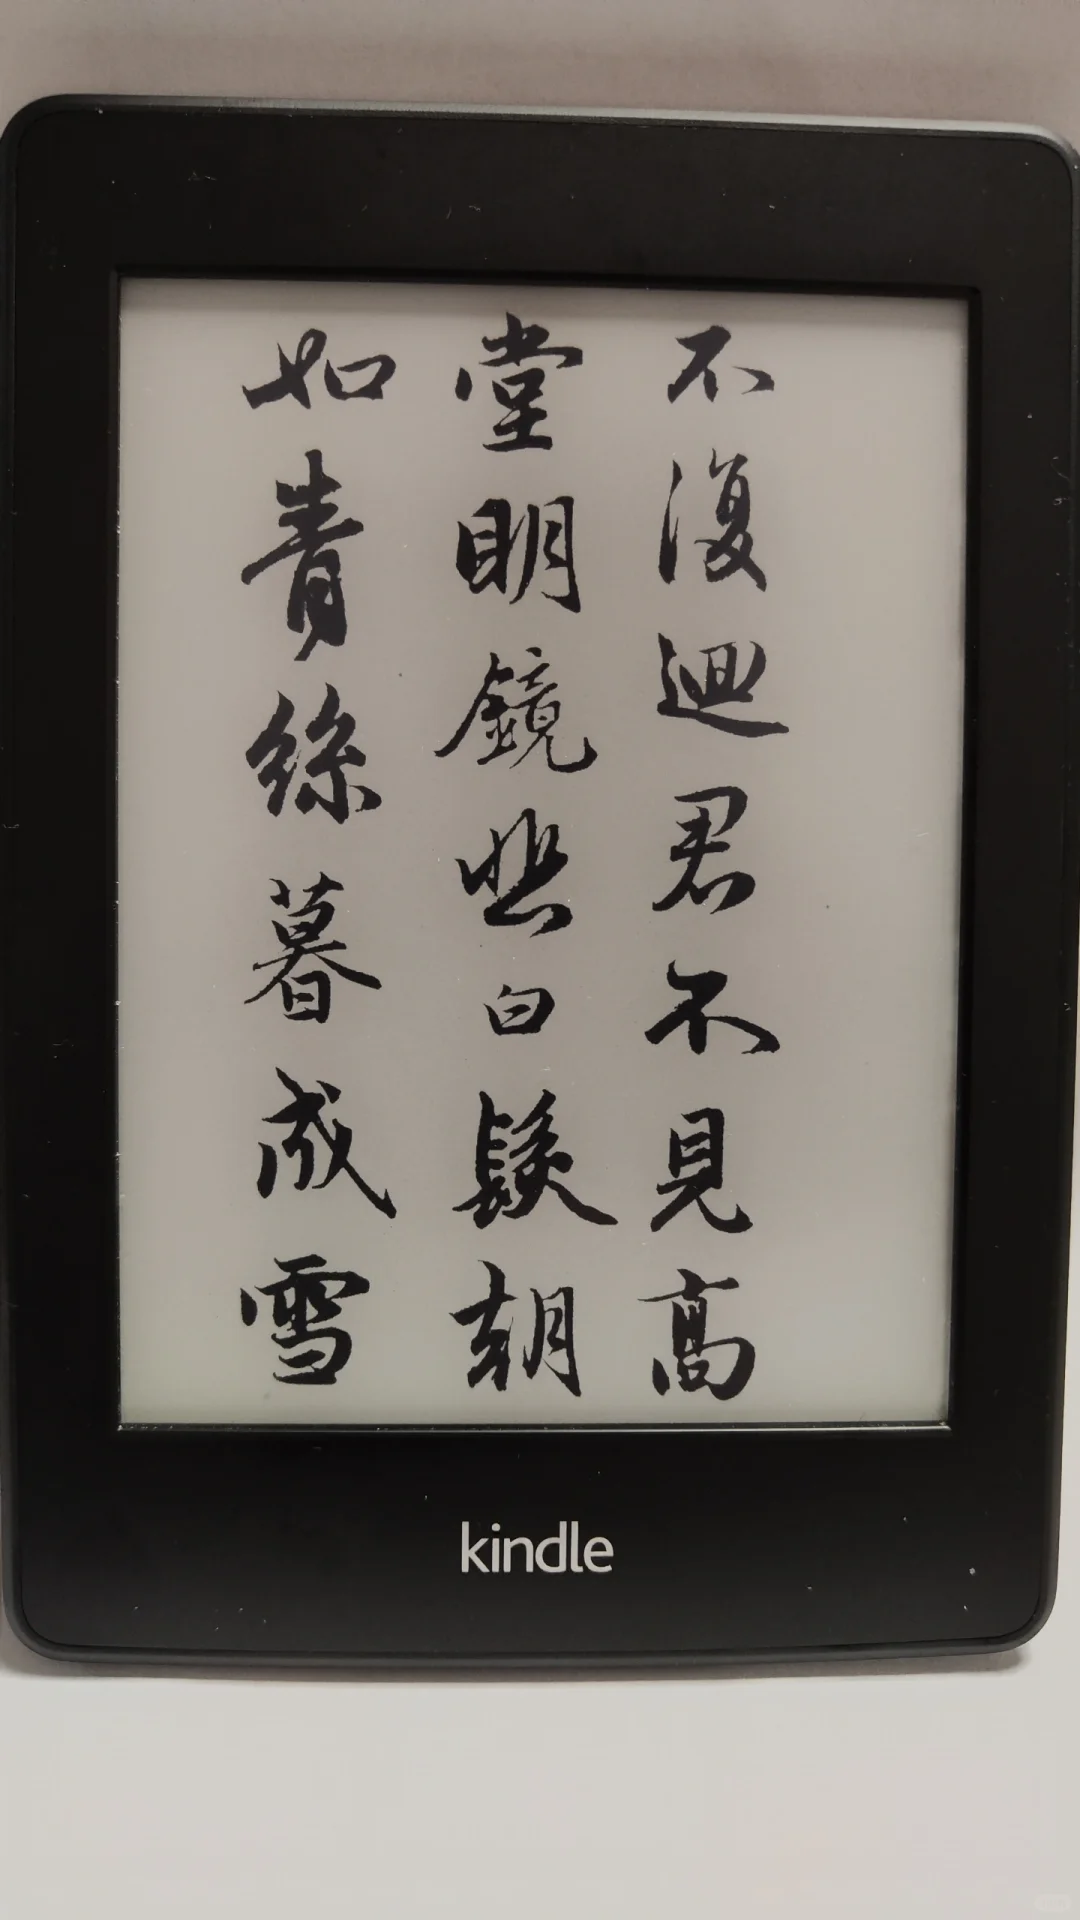 不復迴君不見高
堂明鏡悲白髮朝
如青絲暮成雪
kindle